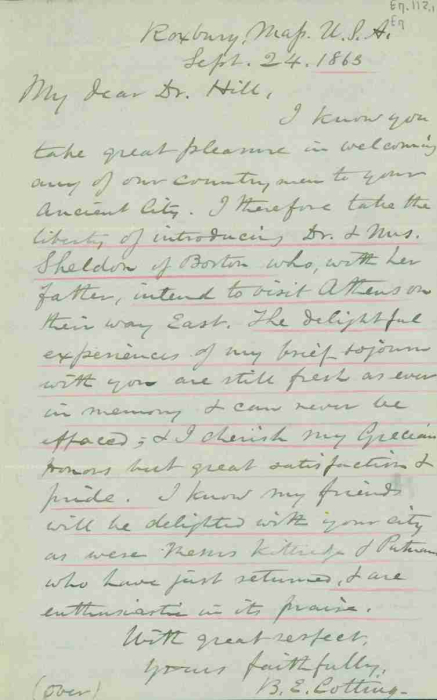 En.112,1
En
Roxbury, Mass. U.S.A.
Sept. 24. 1863
My dear Dr. Hill,
I know you
take great pleasure in welcoming
any of our countrymen to your
Ancient City. I therefore take the
liberty of introducing Dr. & Mrs.
Sheldon of Boston who, with her
father, intend to visit Athens on
their way East. The delightful
experiences of my brief sojourn
with you are still fresh as ever
in memory & can never be
effaced; & I cherish my Grecian
honors but great satisfaction &
pride. I know my friends
will be delighted with your city
as were Messrs Kittredge & Putnam
who have just returned, & are
enthusiastic in its praise.
With great respect,
Yours faithfully,
B. E. Cotting
(over)